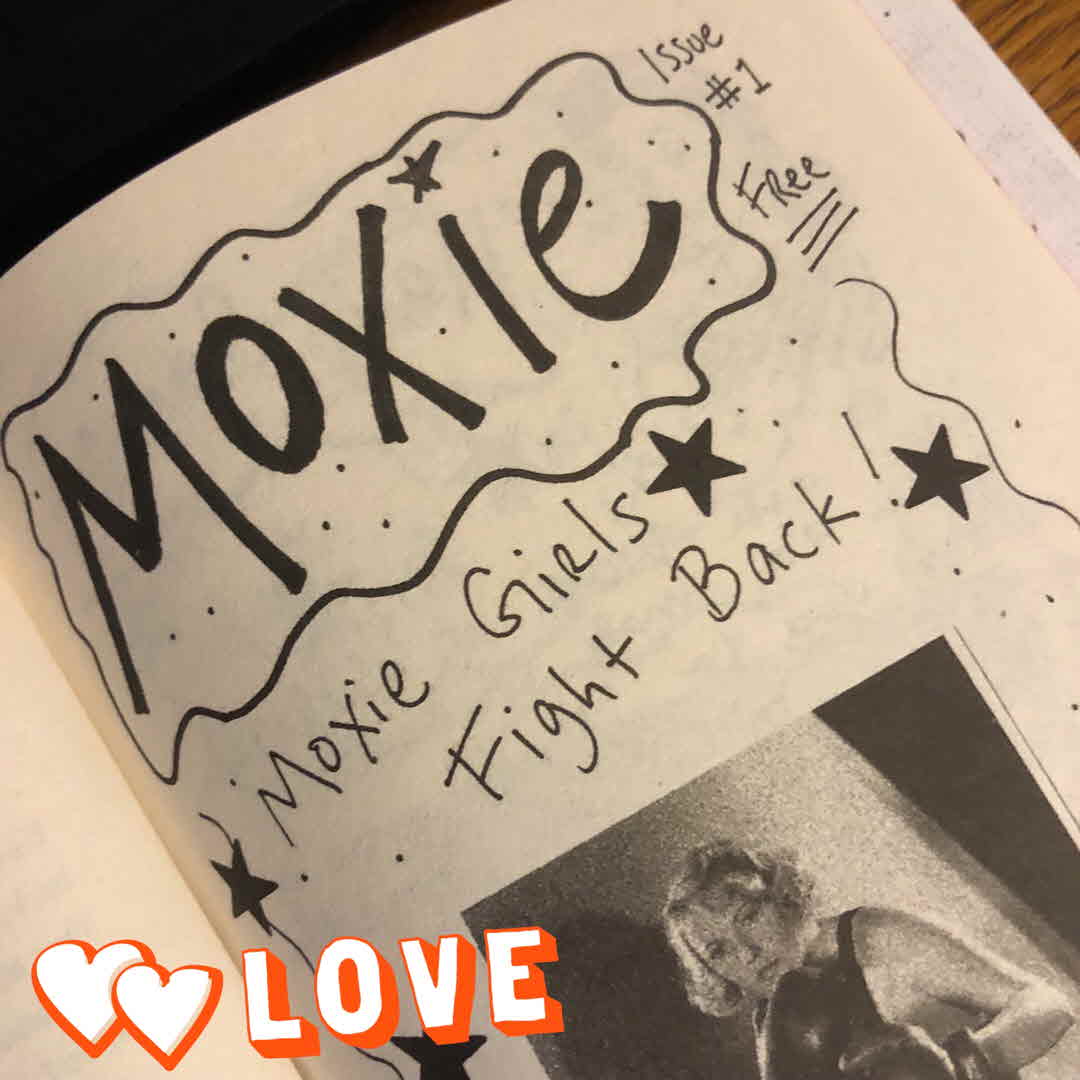 Issue
#1
FRee
MOXie
Moxie GiRls
Fight Back!
LOVE